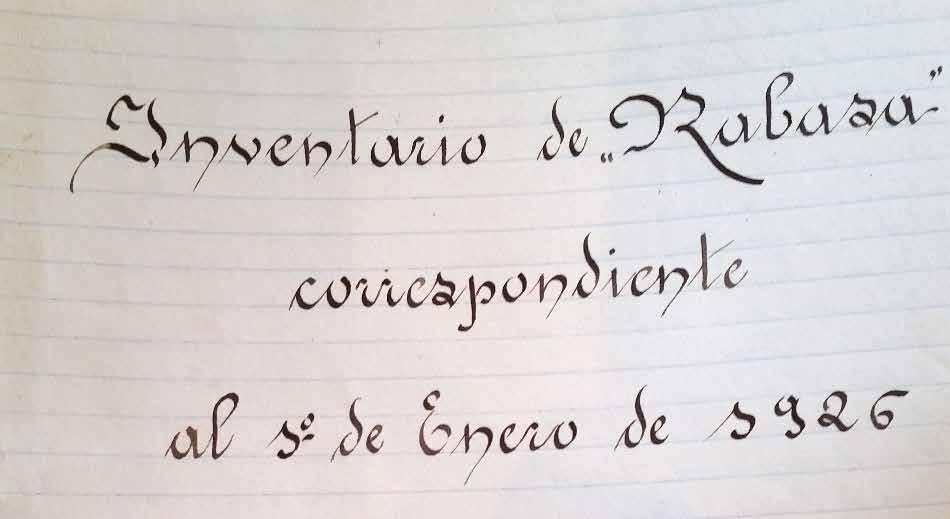 Inventario de „Rabasa”
correspondiente
al 1º de Enero de 1926